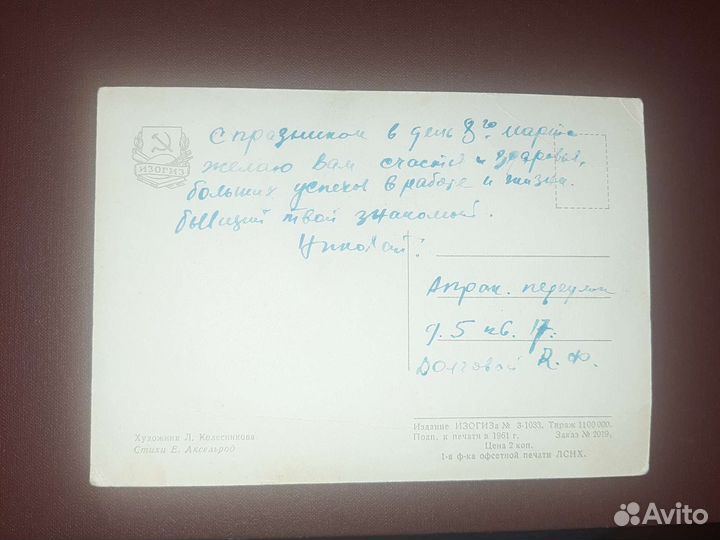 ИЗОГИЗ
С праздником в день 8го марта
желаю вам счастья и здоровья,
больших успехов в работе и жизни.
бывший твой знакомый.
Николай!
Апрак. переулок
д. 5 кв. 17.
Долговой Д. Ф.
Художник Л. Колесникова
Стихи Е. Аксельрод
Издание ИЗОГИЗа № 3-1033. Тираж 1100000.
Подп. к печати в 1961 г. Заказ № 2019.
Цена 2 коп.
1-я ф-ка офсетной печати ЛСНХ.
Avito